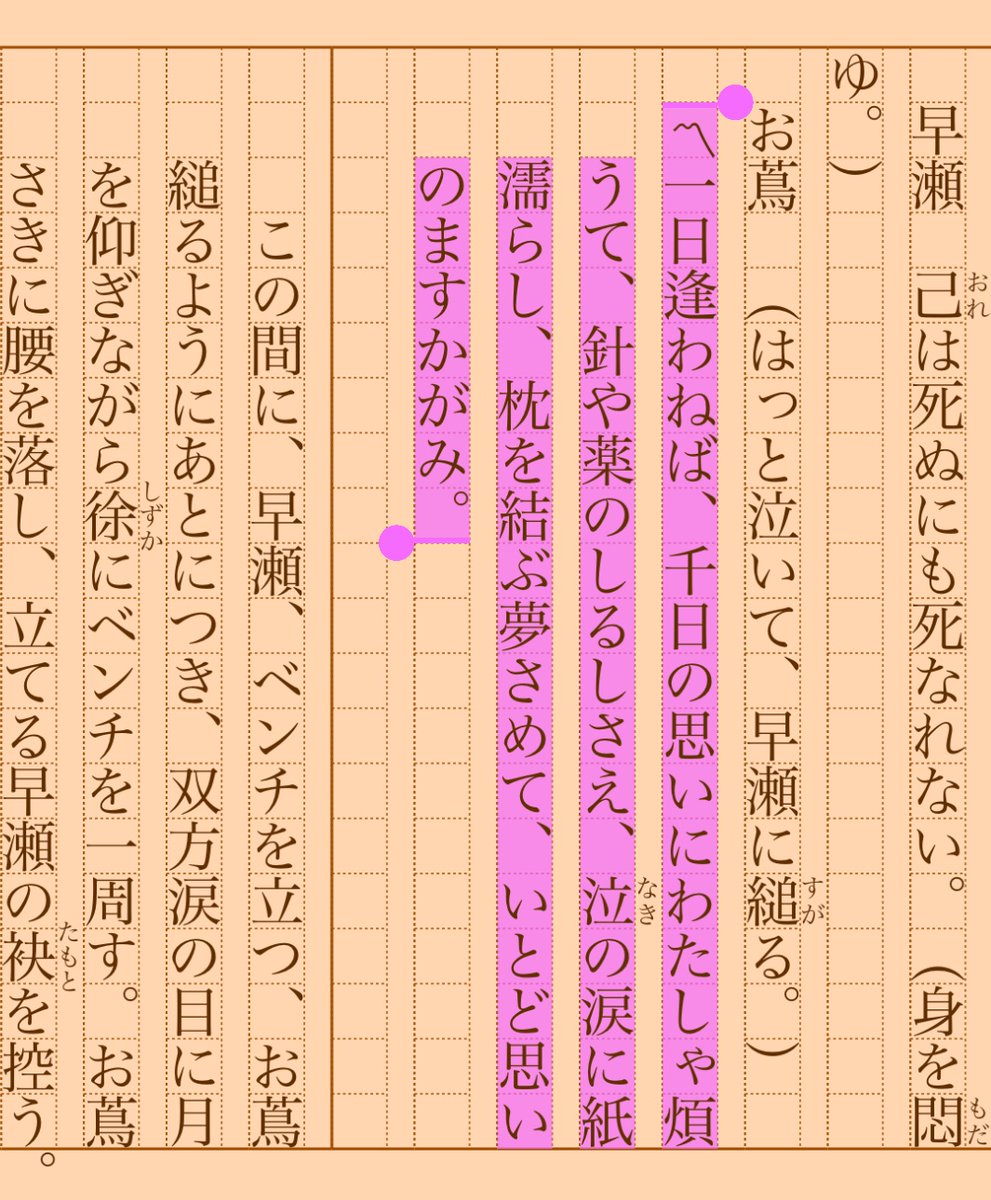 早瀬　己は死ぬにも死なれない。（身を悶
ゆ。）
お蔦　（はっと泣いて、早瀬に縋る。）
〽一日逢わねば、千日の思いにわたしゃ煩
うて、針や薬のしるしさえ、泣の涙に紙
濡らし、枕を結ぶ夢さめて、いとど思い
のますかがみ。
この間に、早瀬、ベンチを立つ、お蔦
縋るようにあとにつき、双方涙の目に月
を仰ぎながら徐にベンチを一周す。お蔦
さきに腰を落し、立てる早瀬の袂を控う。
おれ
もだ
すが
なき
しずか
たもと